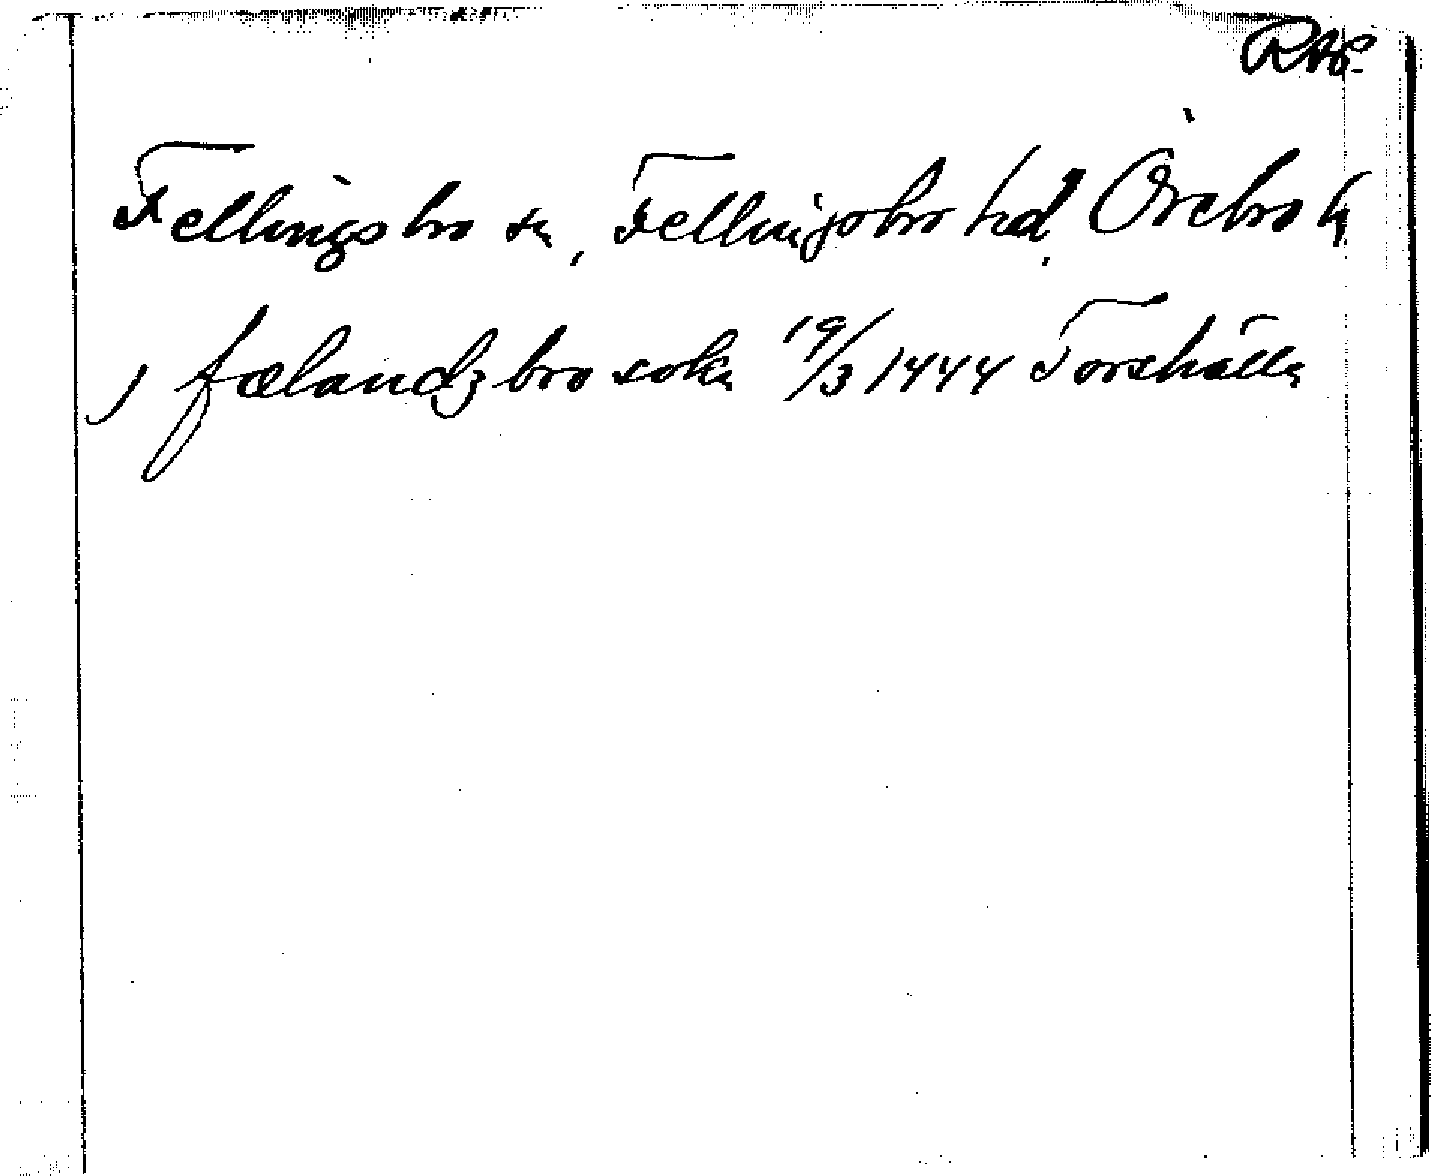 RAp.
Fellingsbro sn, Fellingsbro hd, Örebro l
j fælandzbro sokn 19/3 1444 Torshälla